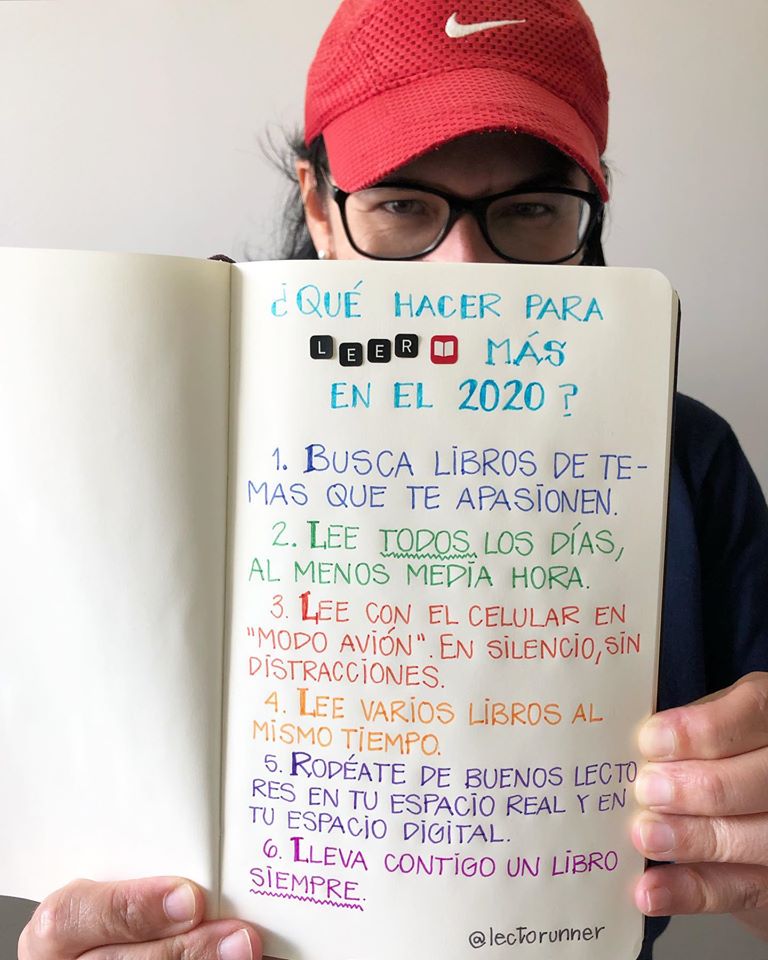 ¿QUÉ HACER PARA
LEER MÁS
EN EL 2020?
1. BUSCA LIBROS DE TE-
MAS QUE TE APASIONEN.
2. LEE TODOS LOS DÍAS,
AL MENOS MEDIA HORA.
3. LEE CON EL CELULAR EN
"MODO AVIÓN". EN SILENCIO, SIN
DISTRACCIONES.
4. LEE VARIOS LIBROS AL
MISMO TIEMPO.
5. RODÉATE DE BUENOS LECTO
RES EN TU ESPACIO REAL Y EN
TU ESPACIO DIGITAL.
6. LLEVA CONTIGO UN LIBRO
SIEMPRE.
@lectorunner